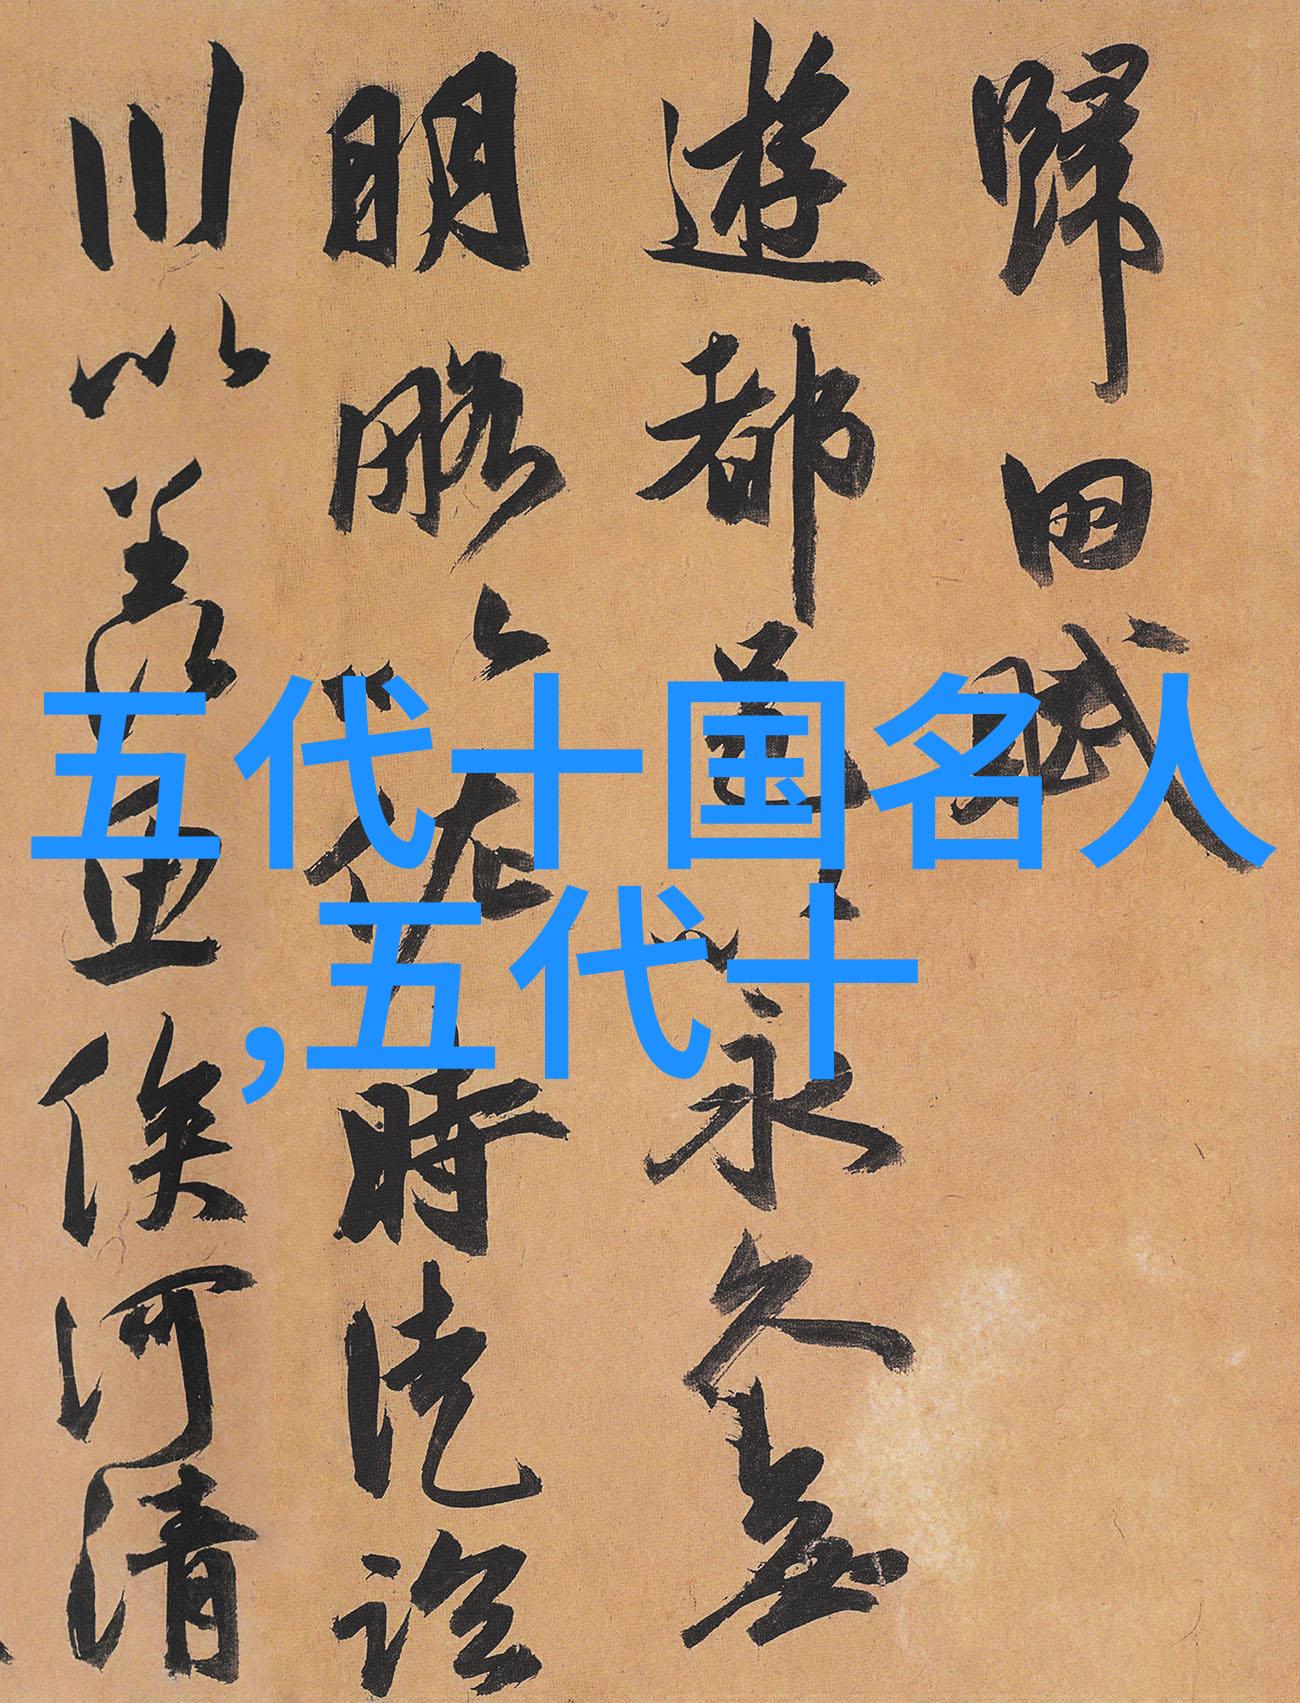 歸田賦
遊都邑以永久無
明略以佐時徒臨
川以羨魚俟河清
五代十国名人
,五代十